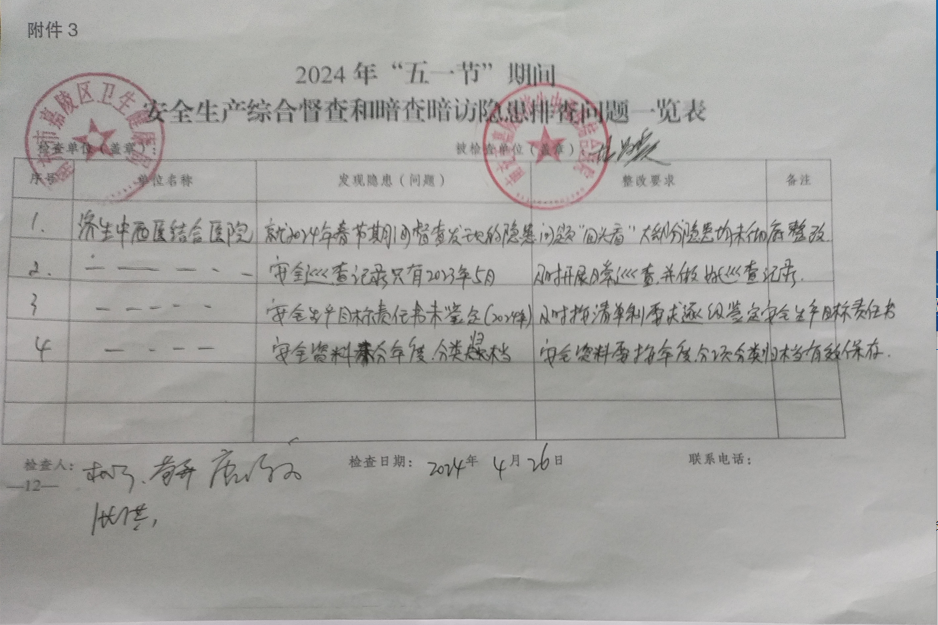 附件3
2024年“五一节”期间
安全生产综合督查和暗查暗访隐患排查问题一览表
检查单位（盖章）： 被检查单位（盖章）：
序号 单位名称 发现隐患（问题） 整改要求 备注
1. 济生中西医结合医院 就2024年春节期间督查发现的隐患问题“回头看”大部分隐患均未彻底整改.
2. 安全巡查记录只有2023年5月 及时开展日常巡查,并做好巡查记录.
3 安全生产目标责任书未签全(2024年) 及时按清单制要求逐级签定安全生产目标责任书
4 安全资料未分年度,分类归档 安全资料要按年度分项分类归档有效保存.
检查人： 检查日期： 2024年 4月 26日 联系电话：
—12—